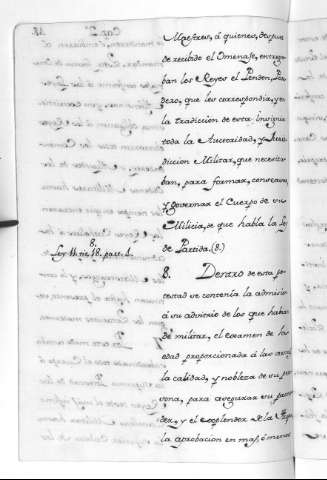 Maestres, á quienes, despues
de recibido el Omenaje, entrega-
ban los Reyes el Pendon, Po-
derio, que les correspondia, y en
la tradicion de esta Insignia
toda la Autoridad, y Juris-
diccion Militar, que necesita-
ban, para formar, conservar,
y governar el Cuerpo de su
Milicia, de que habla la Ley
de Partida. (8.)
8.
Ley 11. tit. 18. part. 1.
8. Dentro de esta po-
testad se contenia la admision
á su advitrio de los que habian
de militar, el examen de la
edad proporcionada á las
la calidad, y nobleza de su per-
sona, para asegurar su
der, y el esplendor de la
la aprobacion en mas, ó menos